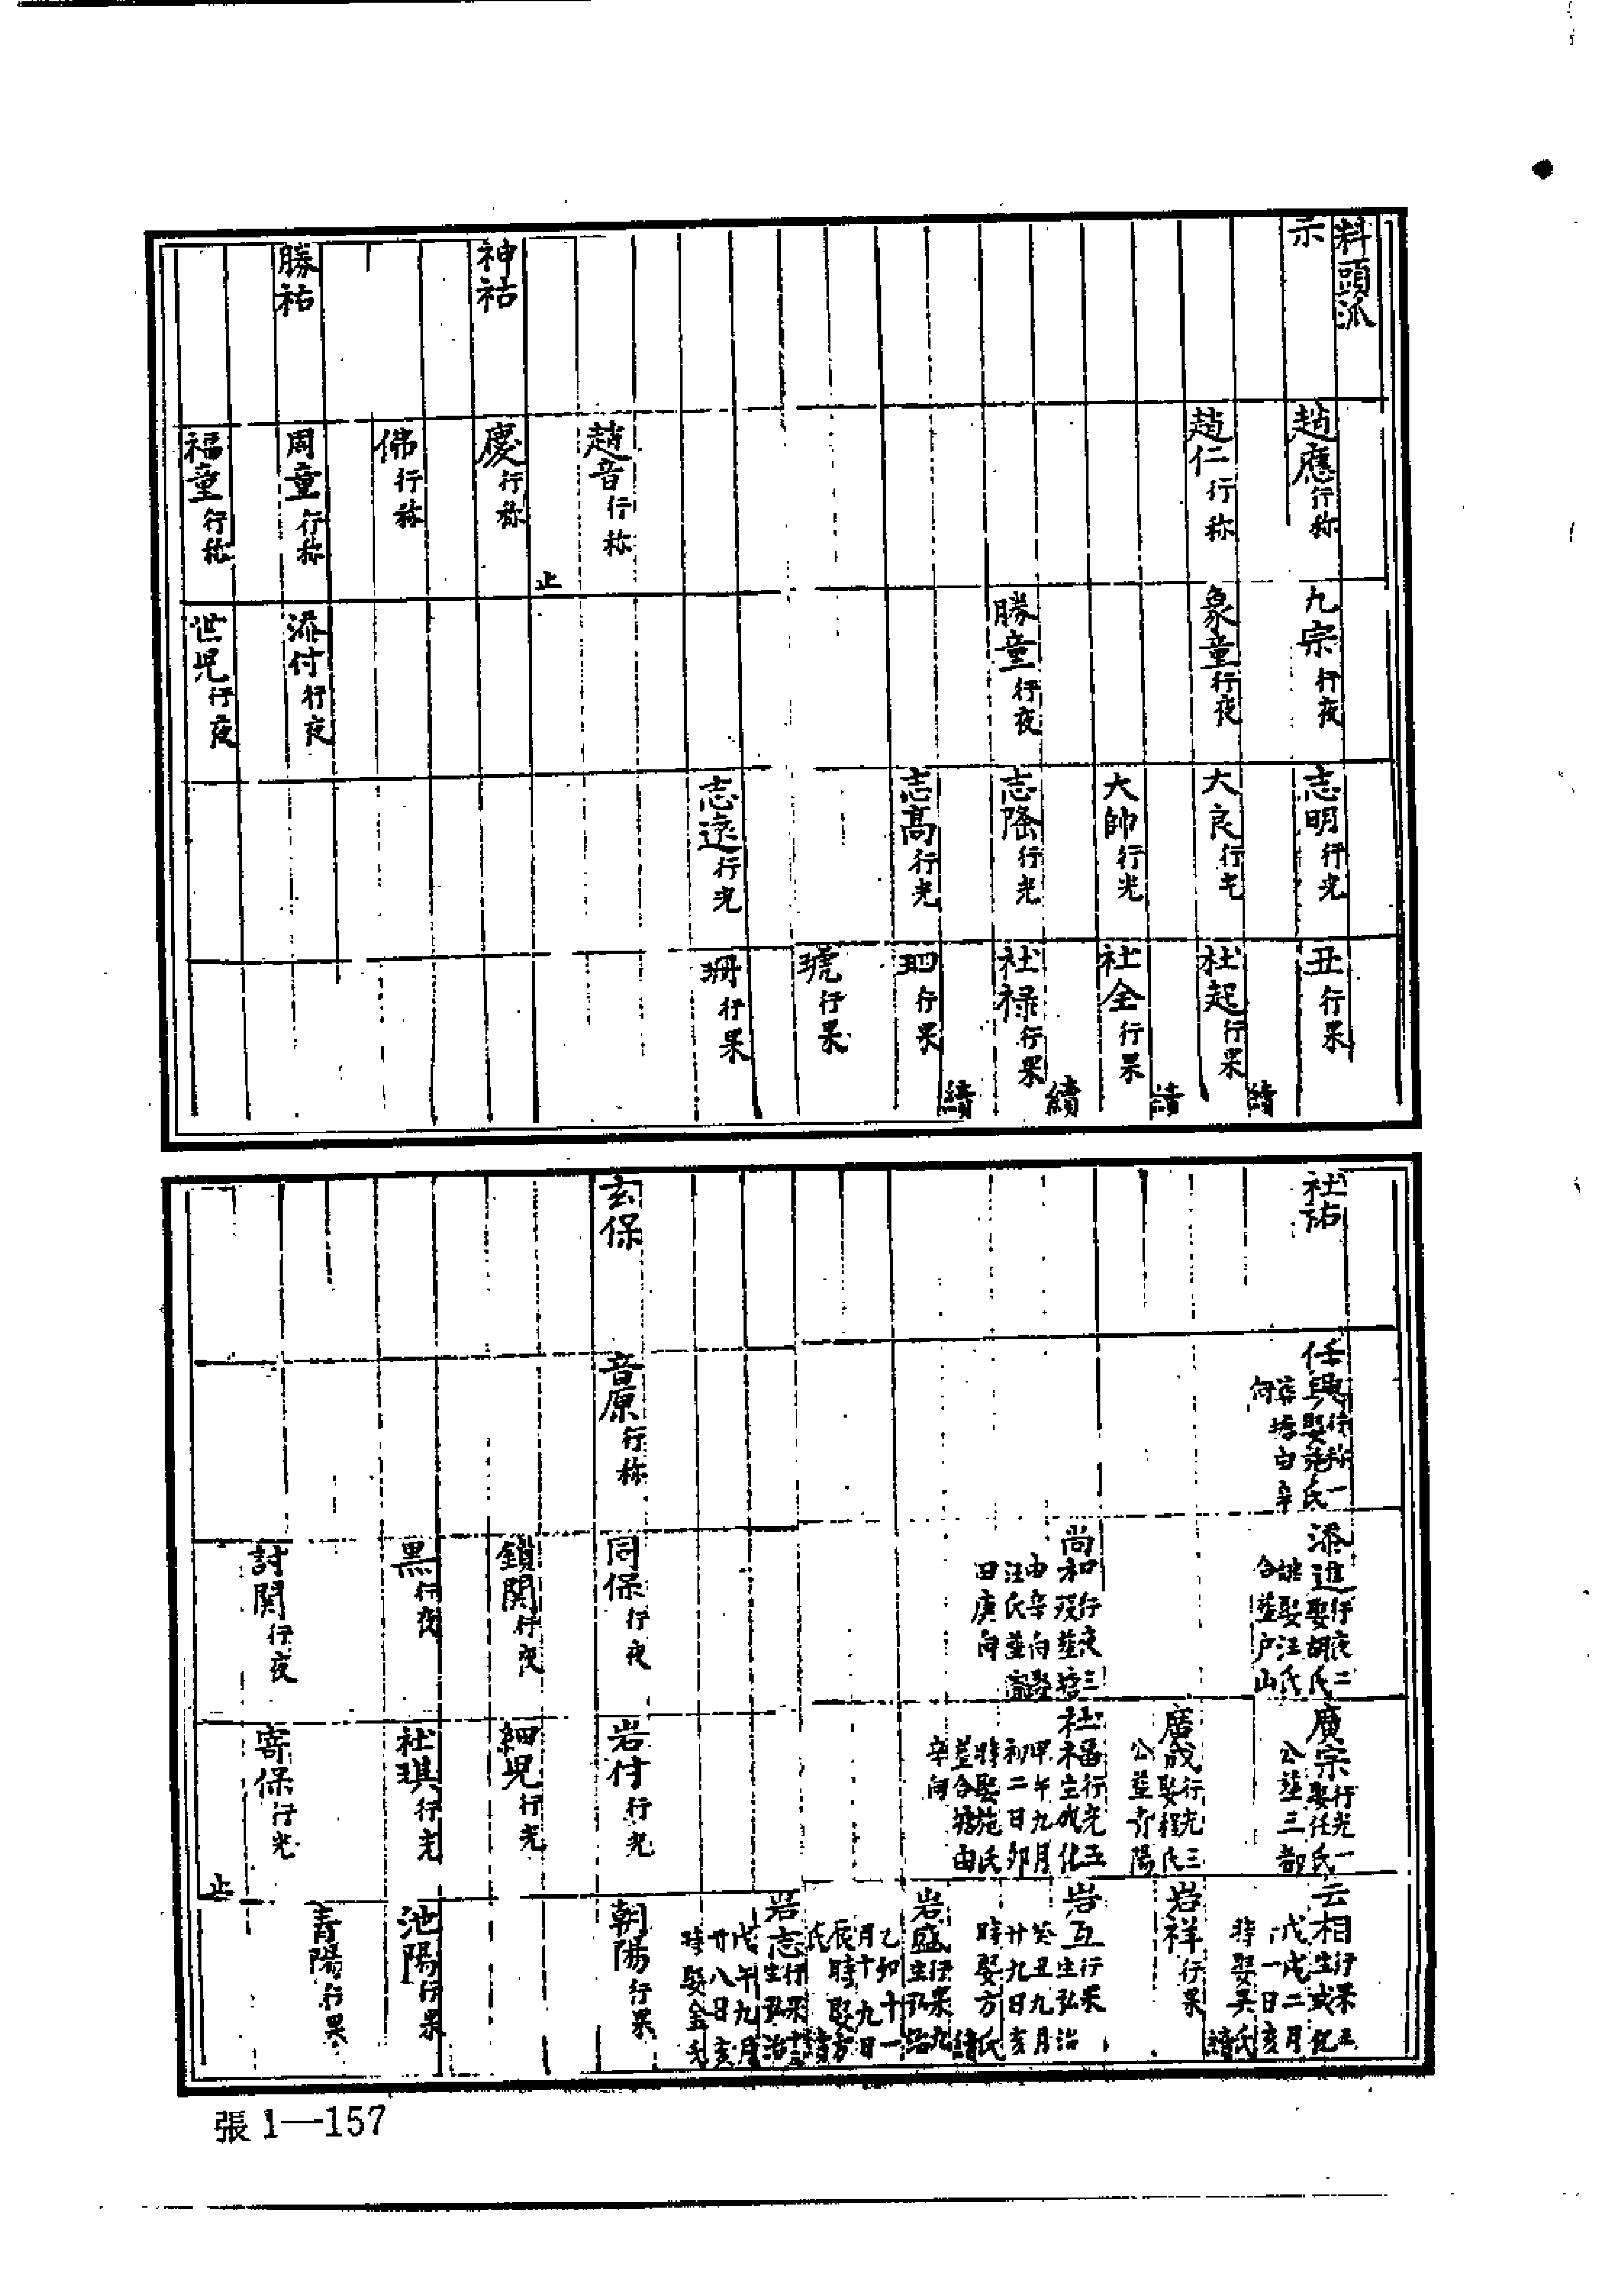 料頭派
示
趙應行称
九宗行夜
志明行光
丑行果
趙仁行称
象童行夜
大良行光
社起行果
續
大帥行光
社全行果
續
勝童行夜
志隆行光
社祿行果
續
志高行光
行果
續
琥行果
志遠行光
珊行果
趙音行称
止
神祐
慶行称
佛行称
勝祐
周童行称
添付行夜
福童行称
世児行夜
社祐
任興行称一
娶范氏
葬塘由辛
向
添進行夜二
娶胡氏
継娶汪氏
合葬户山
廣宗行光一
娶任氏
公葬三都
云相行果五
生成化
戊戌二月
一日亥
時娶吴氏
續
廣成行光三
娶程氏
公葬青陽
岩祥行果
尚和行夜三
歿葬塘
由辛向娶
汪氏葬
田庚向
社福行光五
生成化
甲午九月
初二日卯
時娶施氏
葬合塘由
辛向
岩互行果
生弘治
癸丑九月
廿九日亥
時娶方氏
續
岩盛行果九
生弘治
乙卯十一
月十九日
辰時娶方
氏
續
岩志行果十三
生弘治
戊午九月
廿八日亥
時娶金氏
玄保
音原行称
同保行夜
岩付行光
朝陽行果
鎖関行夜
細児行光
黑行夜
社琪行光
池陽行果
青陽行果
討関行夜
寄保行光
止
張1—157